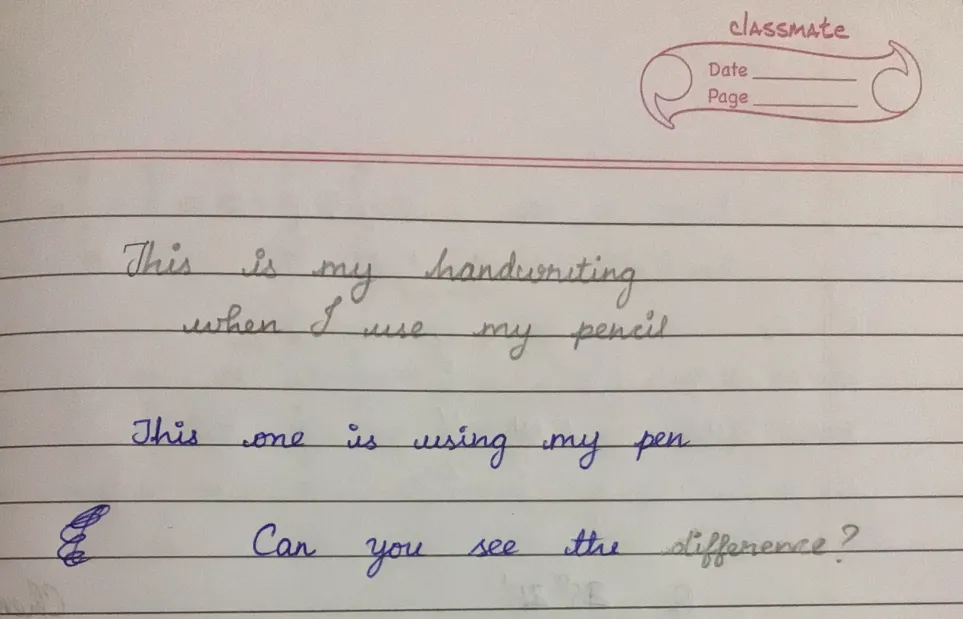 classmate
Date
Page
This is my handwriting
when I use my pencil
This one is using my pen
Can you see the difference?